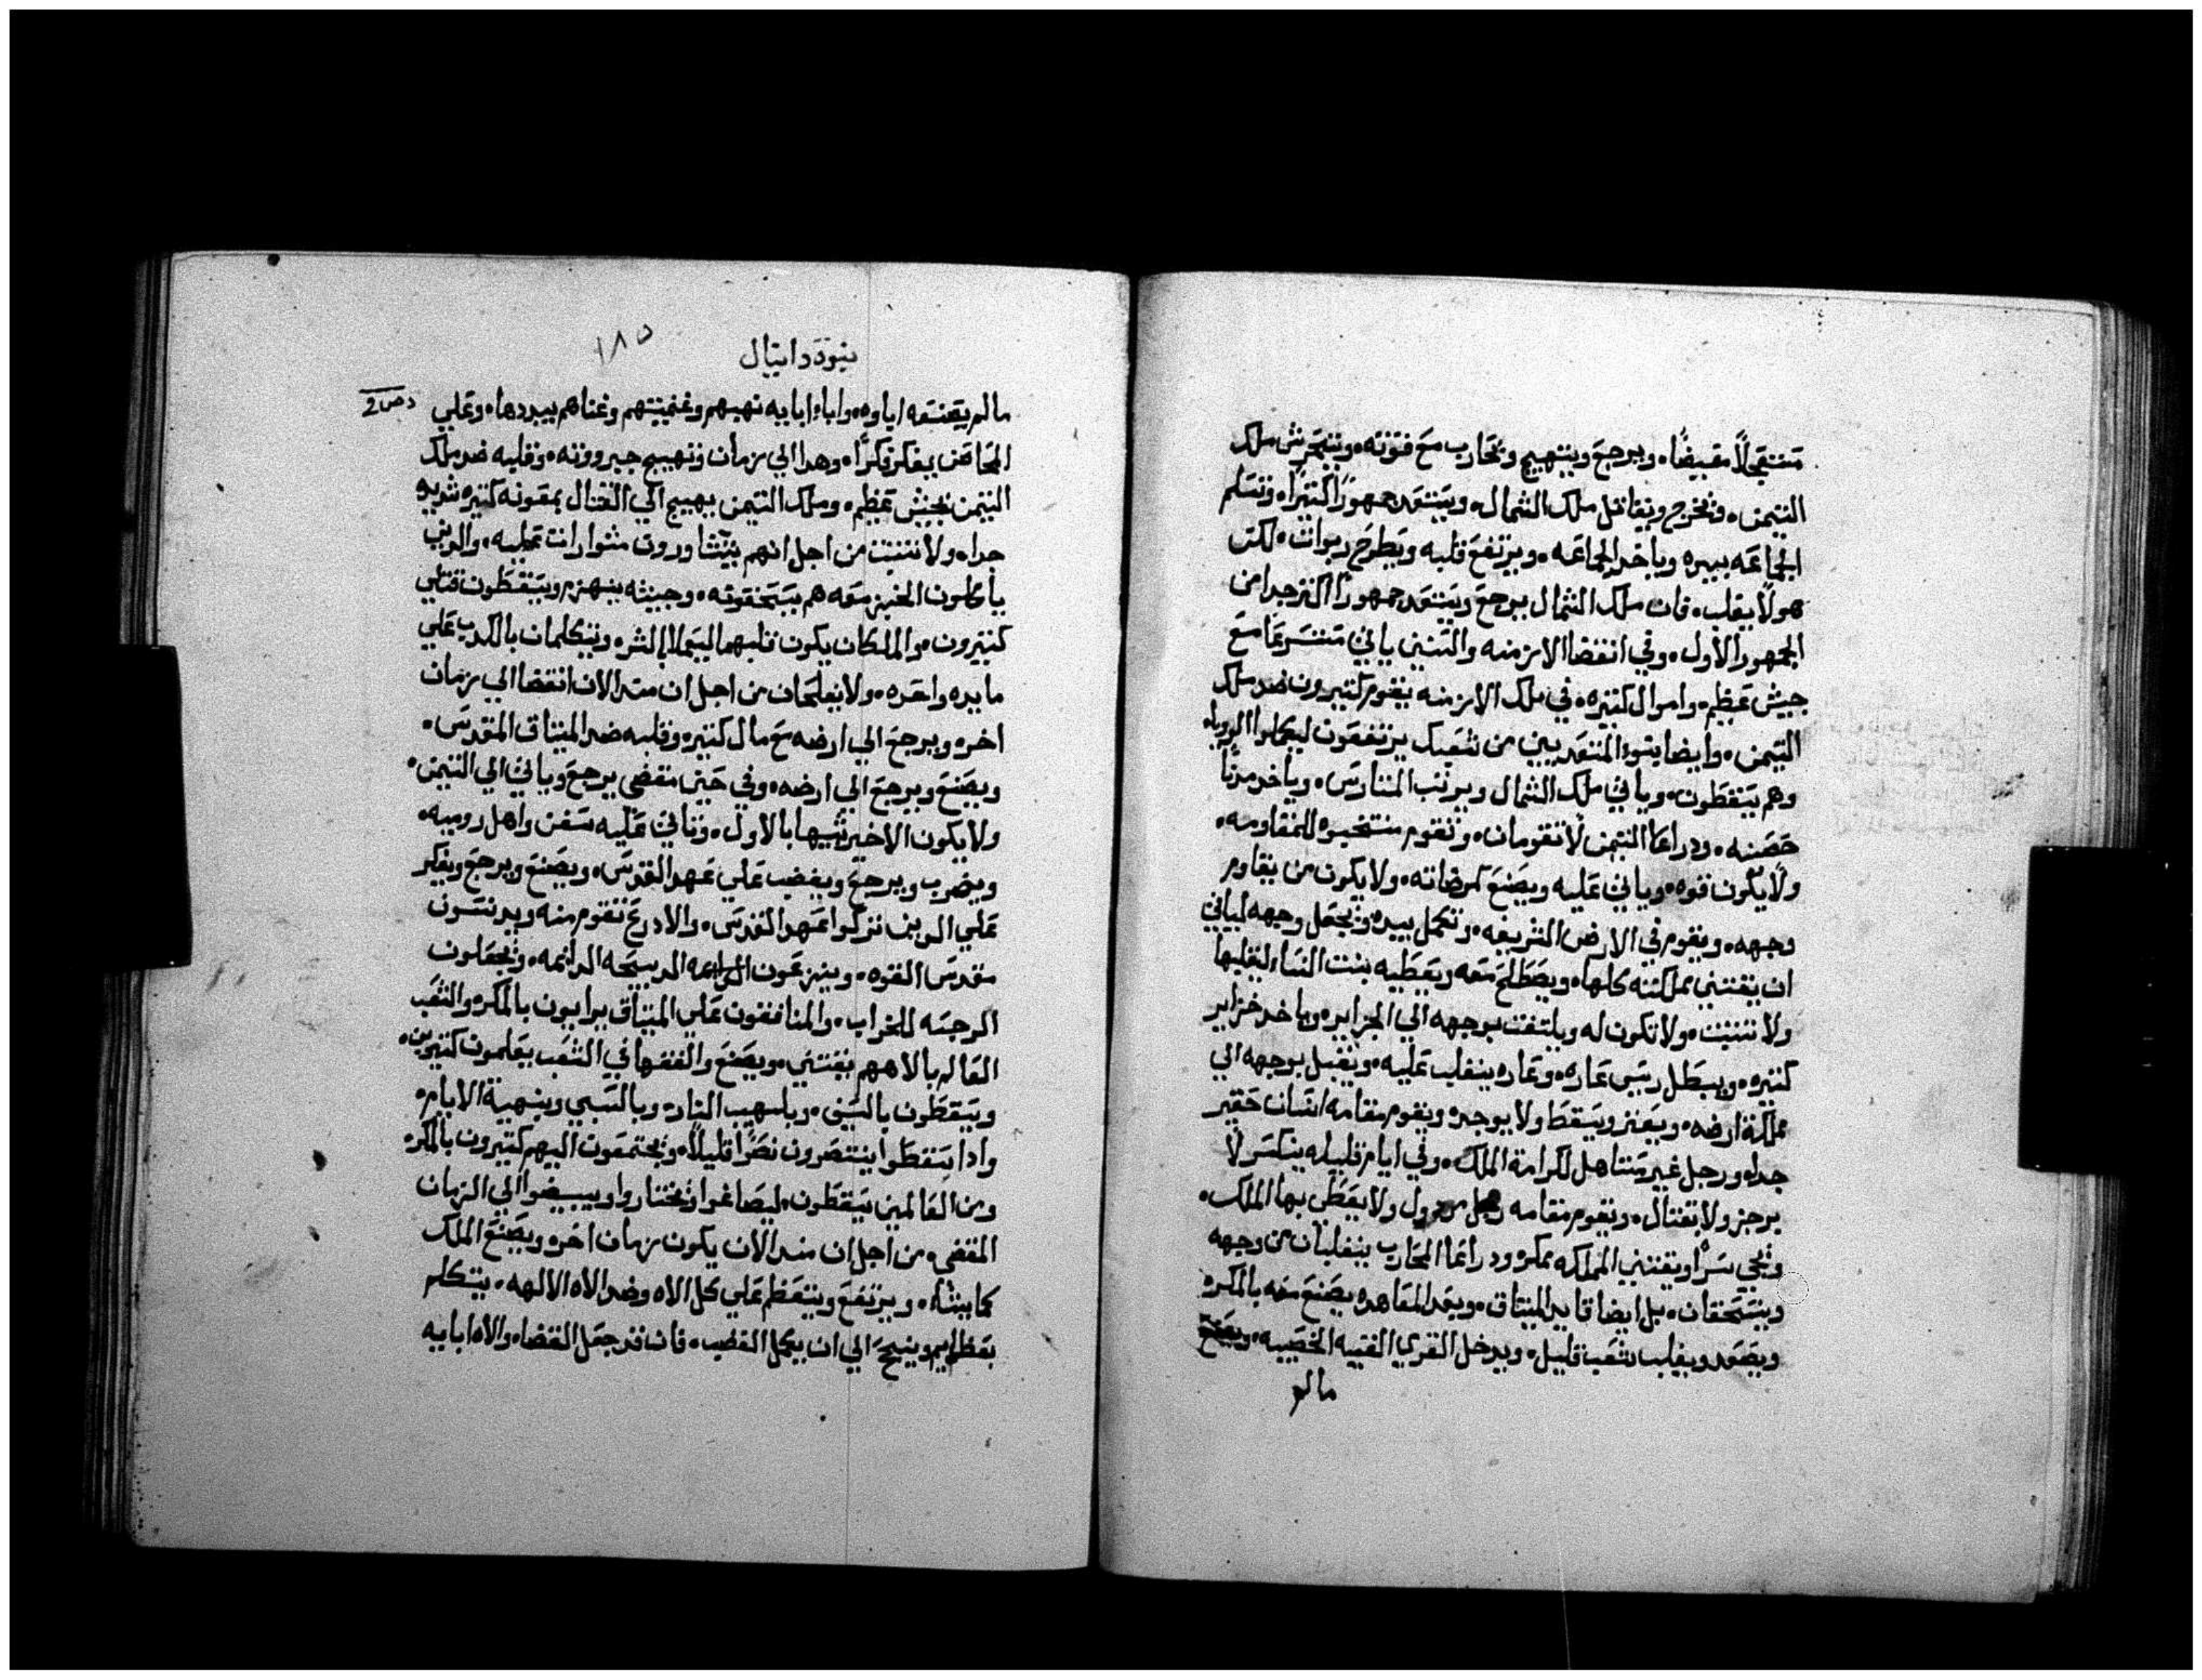 مستعجلاً مقبيضًا، ويرجع ويتهيج ويحارب مع قوته، ويتحرش ملك
التيمن، ويخرج ويقاتل ملك الشمال، ويستعد جمهورًا كثيرًا، وتسلم
الجماعه بيده وياخد الجماعه، ويرتفع قلبه ويطرح ربوات، لكن
هو لا يغلب، فان ملك الشمال يرجع ويستعد جمهورًا اكثر جدا من
الجمهور الاول، وفي انقضا الازمنه والسنين ياتي متسرعًا مع
جيش عظيم، واموال كثيره، في تلك الازمنه يقوم كثيرون ضد ملك
التيمن، وايضا بنوء المتعديين من شعبك يرتفعون ليكملوا الرويا،
وهم يسقطون، وياتي ملك الشمال ويرتب المتارس، وياخد مدنًا
حصينه، ودراعا التيمن لا تقومان، وتقوم منتخبوه للمقاومه،
ولا يكون قوه، وياتي عليه ويصنع كمرضاته، ولا يكون من يقاوم
وجهه، ويقوم في الارض الشريفه، وتكمل بيده ويجعل وجهه لياتي
ان يقتني مملكته كلها، ويصطلح معه ويعطيه بنت النساء ليقلبها
ولا تتثبت، ولا تكون له ويلتفت بوجهه الي الجزاير، وياخد جزاير
كثيره، ويبطل ريس عاره، وعاره ينقلب عليه، ويقبل بوجهه الي
مملكة ارضه، ويعثر ويسقط ولا يوجد، ويقوم مقامه انسان حقير
جدا، ورجل غير مستاهل لكرامة الملك، وفي ايام قليله ينكسر لا
برجز ولا بقتال، ويقوم مقامه مردول ولا يعطي بها الملك،
ويجي سرًا ويقتني المملكه بمكر، ودراعا المحارب ينغلبان من وجهه
وينسحقان، بل ايضا قايد الميتاق، وبعد المعاهده يصنع معه بالمكر،
ويصعد ويغلب بشعب قليل، ويدخل القري الغنيه الخصيبه، ويصنع
مالم
نبوة دانيال ١٨٥
مالم يصنعه اباوه، واباء ابايه نهبهم وغنيمتهم وغناهم يبددها، وعلي
المحاصن يفكر فكرًا، وهدا الي زمان وتهييج جبروته، وقلبه ضد ملك
التيمن بجيش عظيم، وملك التيمن يهييج الي القتال بمعونه كثيره شديده
جدا، ولا تتثبت من اجل انهم يتشاورون مشوارات عليه، والدين
ياكلون الخبز معه هم يسحقونه، وجيشه ينهزم ويسقطون قتلي
كثيرون، والملكان يكون قلبهما ليعملا الشر، ويتكلمان بالكدب علي
مايده واحده، ولا يفلحان من اجل ان مند الان انقضا الي زمان
اخر، ويرجع الي ارضه مع مال كثير، وقلبه ضد الميتاق المقدس،
ويصنع ويرجع الي ارضه، وفي حين منقضي يرجع وياتي الي التيمن،
ولا يكون الاخير شبيها بالاول، وتاتي عليه سفن واهل روميه،
ويضرب ويرجع ويغضب علي عهد القدس، ويصنع ويرجع ويفكر
علي الدين تركوا عهد القدس، والادرع تقوم منه ويدنسون
مقدس القوه، وينزعون الدبيحه الدايمه، ويجعلون
الرجسه للخراب، والمنافقون علي الميتاق يرايون بالمكر، والشعب
العالم بالاههم يقتني، ويصنع والفقها في الشعب يعلمون كثيرين،
ويسقطون بالسيف، وبلهيب النار، وبالسبي وبنهبة الايام،
وادا يسقطوا ينتصرون نصرًا قليلاً، ويجتمعون اليهم كثيرون بالمكر،
ومن العالمين يسقطون، ليصاغوا ويختاروا ويبيضوا الي الزمان
المقضي، من اجل ان مند الان يكون زمان اخر، ويصنع الملك
كما يشاء، ويرتفع ويتعظم علي كل الاه وضد الاه الالهه، يتكلم
بعظايم وينجح الي ان يكمل الغضب، فان قد جعل القضا، والاه ابايه